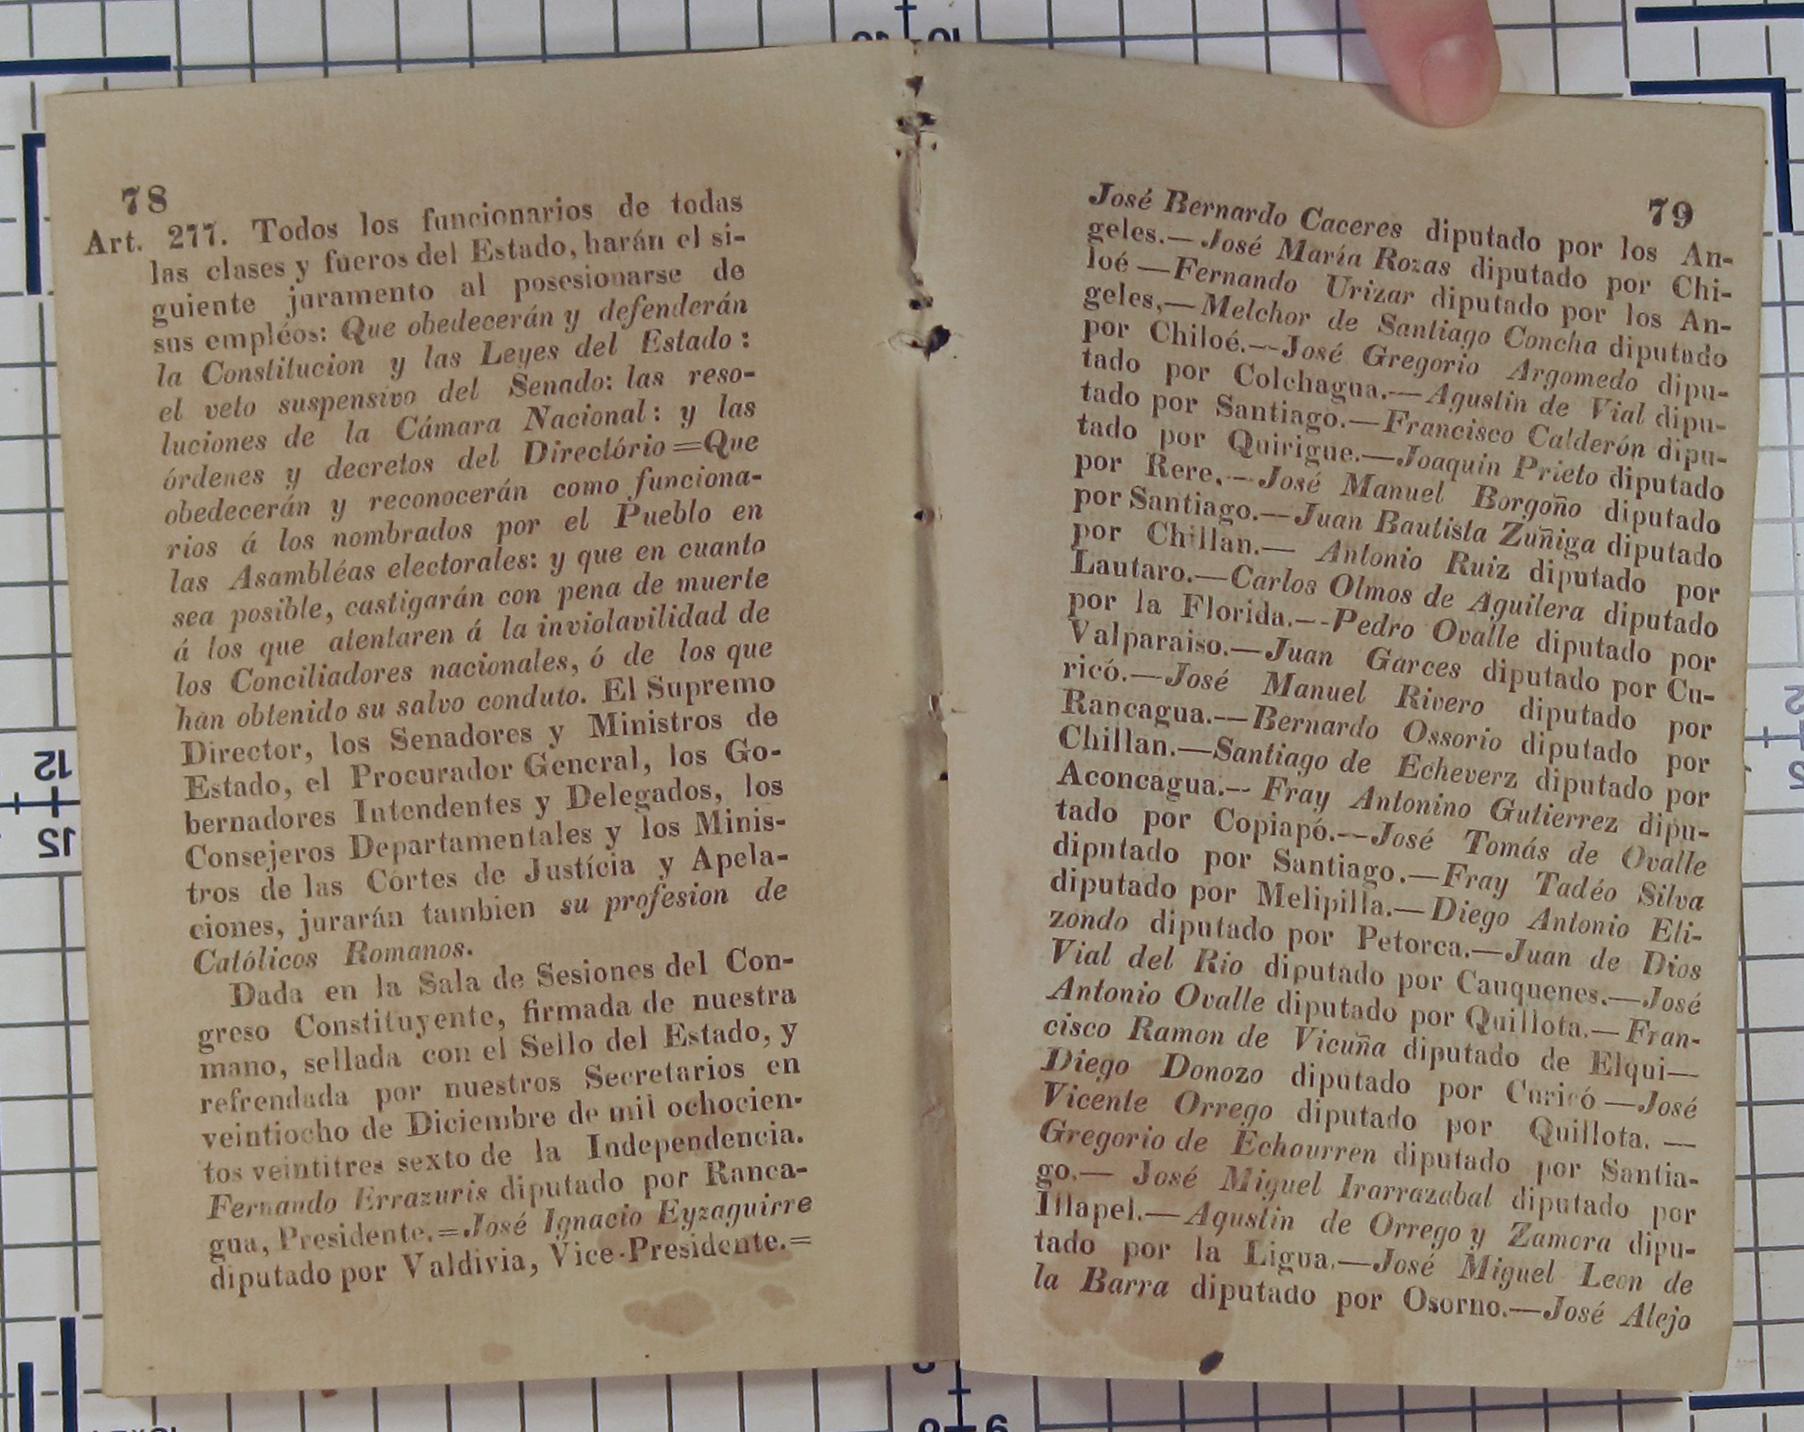 78
Art. 277. Todos los funcionarios de todas
las clases y fueros del Estado, harán el si-
guiente juramento al posesionarse de
sus empléos: Que obedecerán y defenderán
la Constitucion y las Leyes del Estado:
el veto suspensivo del Senado: las reso-
luciones de la Cámara Nacional: y las
órdenes y decretos del Directório=Que
obedecerán y reconocerán como funciona-
rios á los nombrados por el Pueblo en
las Asambléas electorales: y que en cuanto
sea posible, castigarán con pena de muerte
á los que atentaren á la inviolavilidad de
los Conciliadores nacionales, ó de los que
han obtenido su salvo conduto. El Supremo
Director, los Senadores y Ministros de
Estado, el Procurador General, los Go-
bernadores Intendentes y Delegados, los
Consejeros Departamentales y los Minis-
tros de las Córtes de Justícia y Apela-
ciones, jurarán tambien su profesion de
Católicos Romanos.
Dada en la Sala de Sesiones del Con-
greso Constituyente, firmada de nuestra
mano, sellada con el Sello del Estado, y
refrendada por nuestros Secretarios en
veintiocho de Diciembre de mil ochocien-
tos veintitres sexto de la Independencia.
Fernando Errazuris diputado por Ranca-
gua, Presidente.=José Ignacio Eyzaguirre
diputado por Valdivia, Vice-Presidente.=
79
José Bernardo Caceres diputado por los An-
geles.—José María Rozas diputado por Chi-
loé—Fernando Urizar diputado por los An-
geles,—Melchor de Santiago Concha diputado
por Chiloé.—José Gregorio Argomedo dipu-
tado por Colchagua.—Agustin de Vial dipu-
tado por Santiago.—Francisco Calderón dipu-
tado por Quirigue.—Joaquin Prieto diputado
por Rere.—José Manuel Borgoño diputado
por Santiago.—Juan Bautista Zuñiga diputado
por Chillan.— Antonio Ruiz diputado por
Lautaro.—Carlos Olmos de Aguilera diputado
por la Florida.—Pedro Ovalle diputado por
Valparaiso.—Juan Garces diputado por Cu-
ricó.—José Manuel Rivero diputado por
Rancagua.—Bernardo Ossorio diputado por
Chillan.—Santiago de Echeverz diputado por
Aconcagua.— Fray Antonino Gutierrez dipu-
tado por Copiapó.—José Tomás de Ovalle
diputado por Santiago.—Fray Tadéo Silva
diputado por Melipilla.—Diego Antonio Eli-
zondo diputado por Petorca.—Juan de Dios
Vial del Rio diputado por Cauquenes.—José
Antonio Ovalle diputado por Quillota.—Fran-
cisco Ramon de Vicuña diputado de Elqui—
Diego Donozo diputado por Curicó—José
Vicente Orrego diputado por Quillota. —
Gregorio de Echaurren diputado por Santia-
go.— José Miguel Irarrazabal diputado por
Illapel.—Agustin de Orrego y Zamora dipu-
tado por la Ligua.—José Miguel Leon de
la Barra diputado por Osorno.—José Alejo
12
12